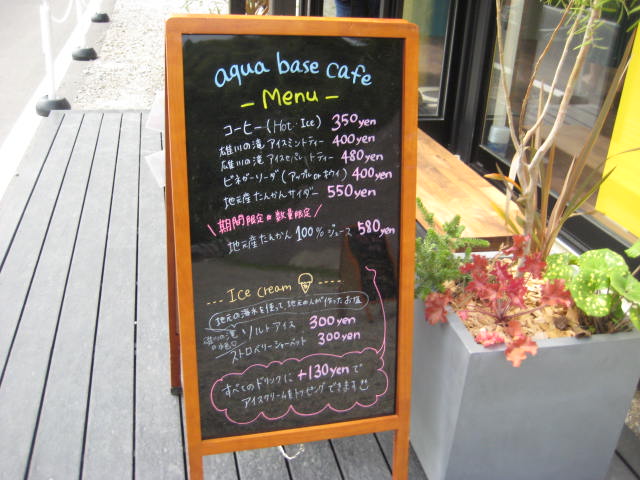 aqua base cafe
- Menu -
コーヒー(Hot・Ice) 350yen
雄川の滝 アイスミントティー 400yen
雄川の滝 アイスセパレートティー 480yen
ビネガーソーダ(アップル or ホワイト) 400yen
地元産たんかんサイダー 550yen
\期間限定・数量限定/
地元産たんかん 100%ジュース 580yen
--- Ice cream ---
地元の海水を使って、地元の人が作ったお塩
ソルトアイス 300yen
ストロベリーシャーベット 300yen
すべてのドリンクに +130yenで
アイスクリームをトッピングできます